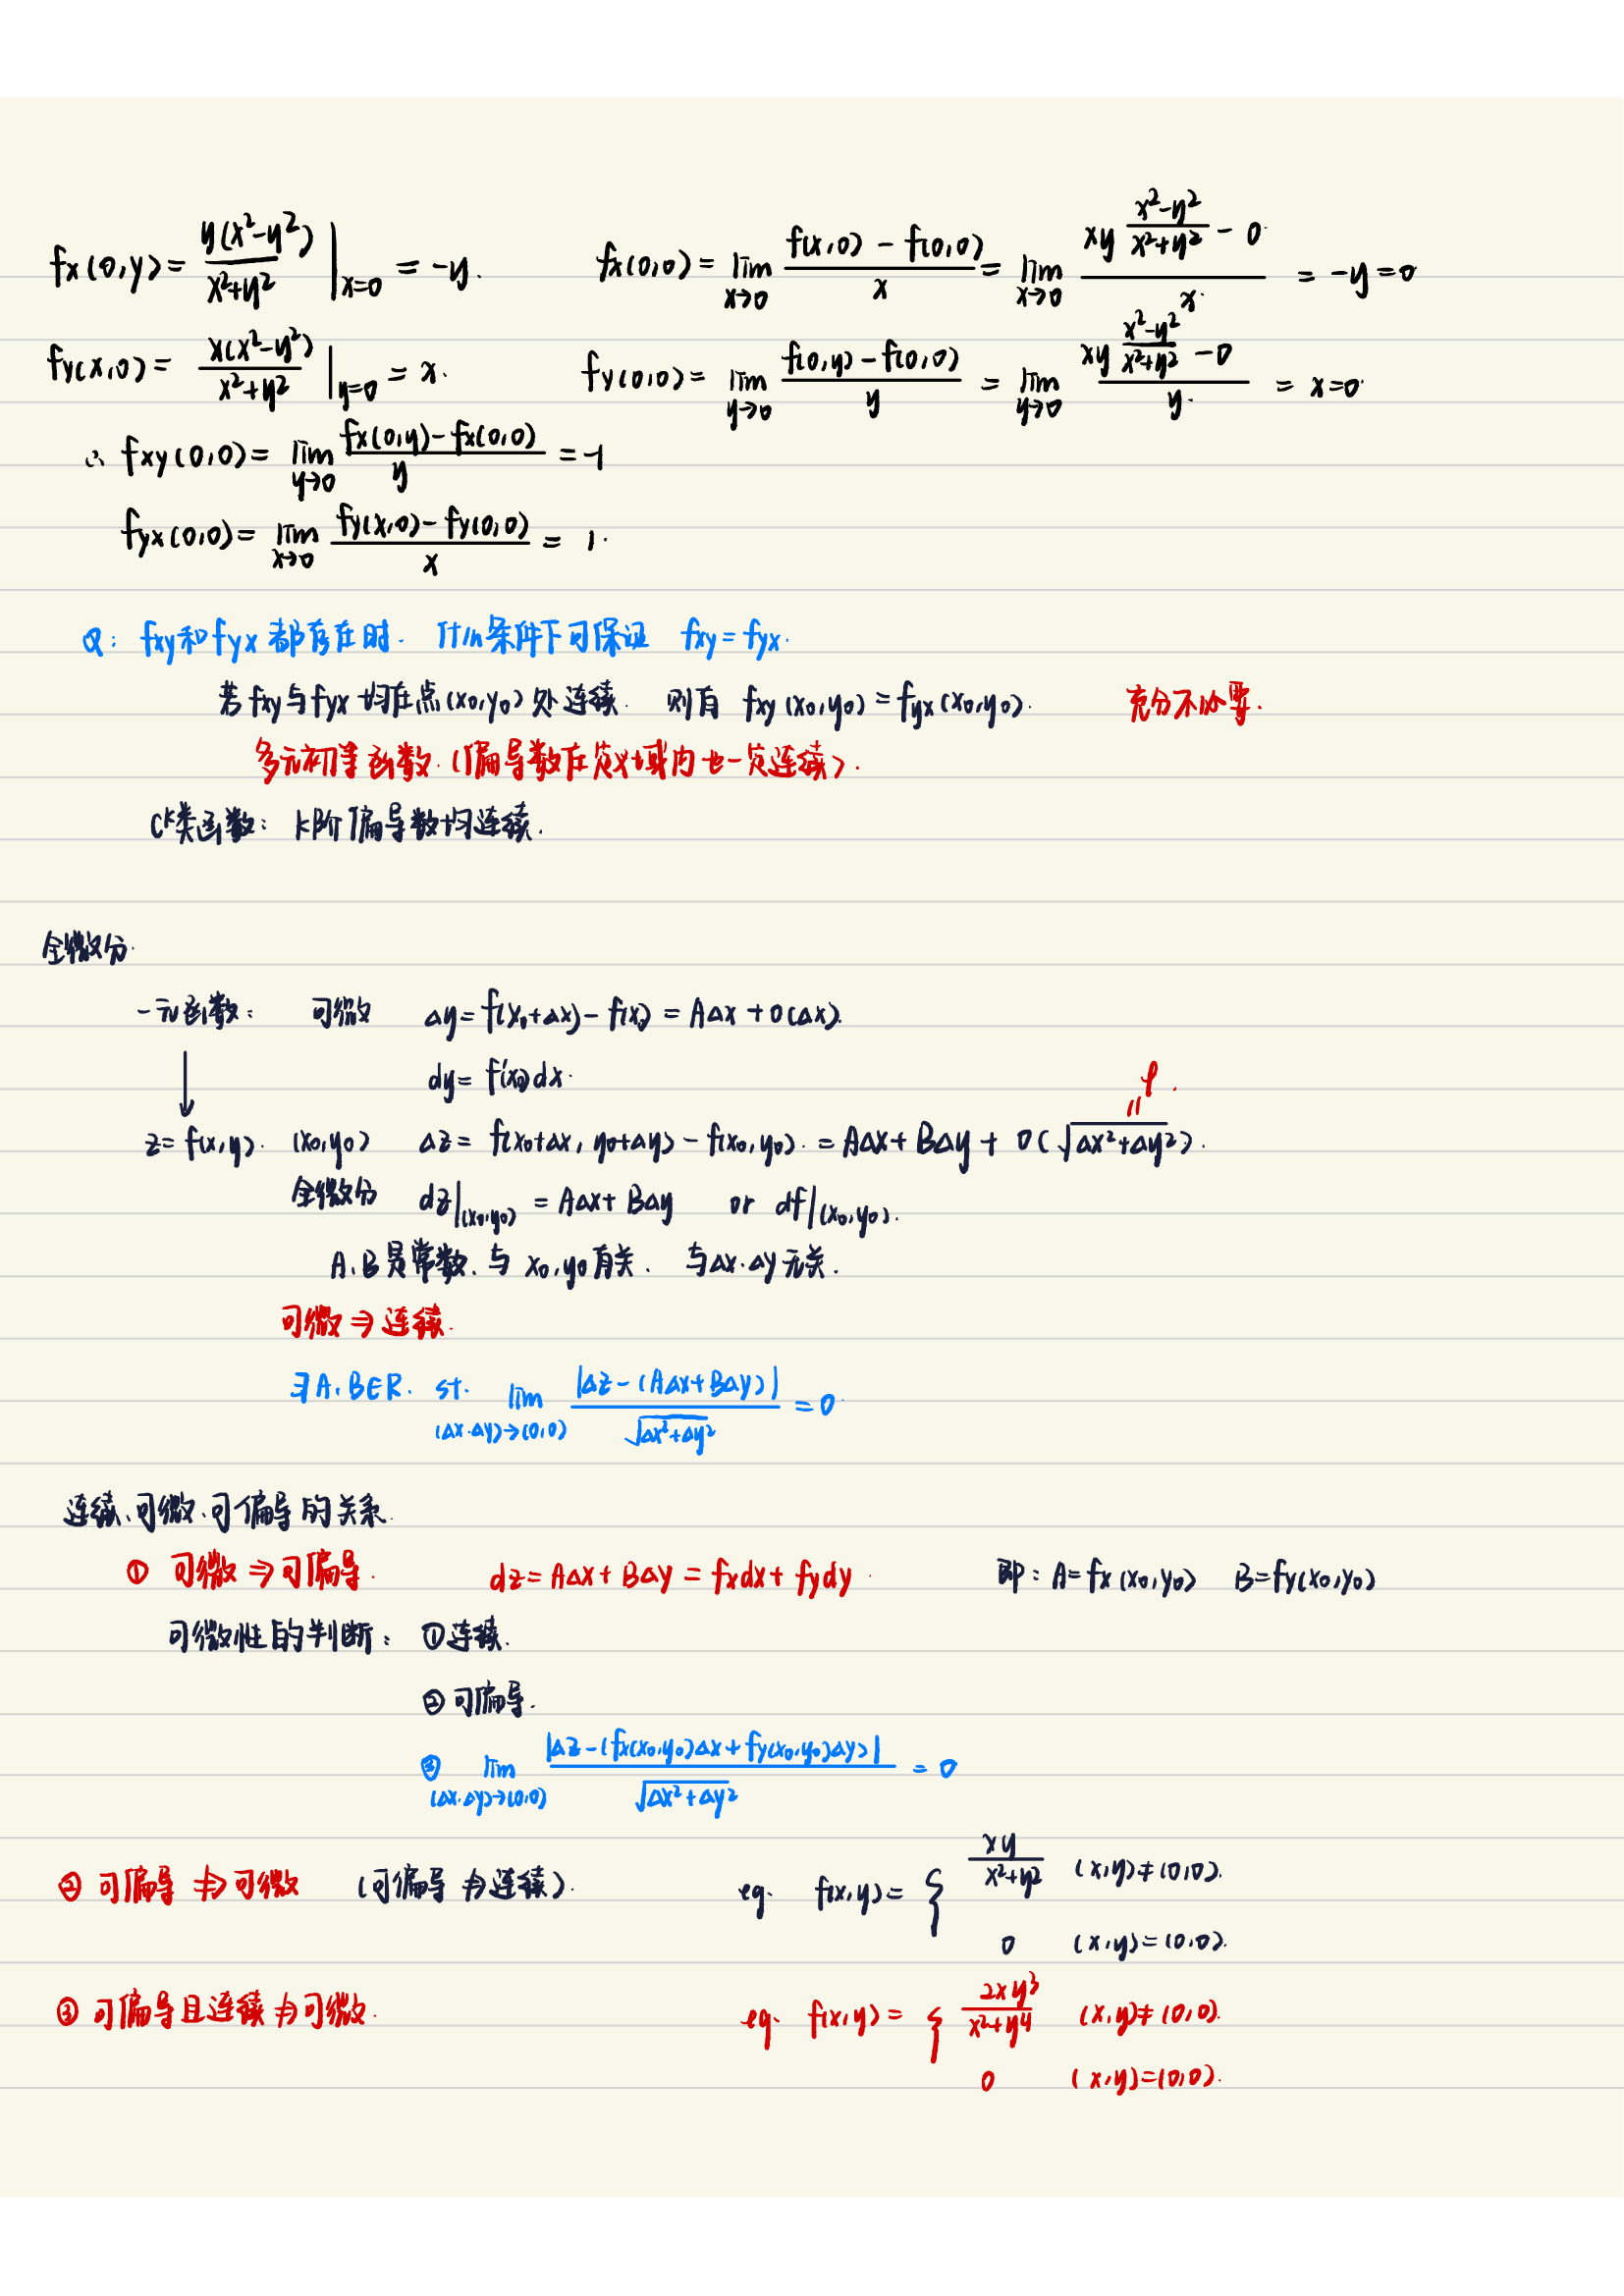 fx(0,y)= y(x²-y²)/x²+y² |x=0 = -y. fx(0,0)= lim x→0 f(x,0)-f(0,0)/x = lim x→0 xy x²-y²/x²+y² - 0/x = -y=0
fy(x,0)= x(x²-y²)/x²+y² |y=0 = x. fy(0,0)= lim y→0 f(0,y)-f(0,0)/y = lim y→0 xy x²-y²/x²+y² - 0/y = x=0
∴ fxy(0,0)= lim y→0 fx(0,y)-fx(0,0)/y = -1
fyx(0,0)= lim x→0 fy(x,0)-fy(0,0)/x = 1.
Q: fxy和fyx 都存在时. 什么条件下可保证 fxy=fyx.
若fxy与fyx均在点(x0,y0)处连续. 则有 fxy(x0,y0)=fyx(x0,y0). 充分不必要.
多元初等函数.(偏导数在定义域内也一定连续).
Cᵏ类函数: k阶偏导数均连续.
全微分.
一元函数: 可微 Δy=f(x0+Δx)-f(x0)=AΔx+o(Δx).
dy=f'(x0)dx.
↓ ρ.
=
z=f(x,y). (x0,y0) Δz= f(x0+Δx, y0+Δy)-f(x0,y0).=AΔx+BΔy+o(√Δx²+Δy²).
全微分 dz|(x0,y0) = AΔx+BΔy or df|(x0,y0).
A、B是常数、与x0,y0有关. 与Δx.Δy无关.
可微⇒连续.
∃A、B∈R. st. lim (Δx.Δy)→(0,0) |Δz-(AΔx+BΔy)|/√Δx²+Δy² =0
连续、可微、可偏导的关系.
① 可微⇒可偏导. dz=AΔx+BΔy=fxdx+fydy. 即: A=fx(x0,y0) B=fy(x0,y0)
可微性的判断: ①连续.
②可偏导.
③ lim (Δx.Δy)→(0,0) |Δz-(fx(x0,y0)Δx+fy(x0,y0)Δy)|/√Δx²+Δy² =0
② 可偏导⇏可微 (可偏导⇏连续). eg. f(x,y)= { xy/x²+y² (x,y)≠(0,0).
0 (x,y)=(0,0).
③ 可偏导且连续⇏可微. eg. f(x,y)= { 2xy³/x²+y⁴ (x,y)≠(0,0).
0 (x,y)=(0,0).